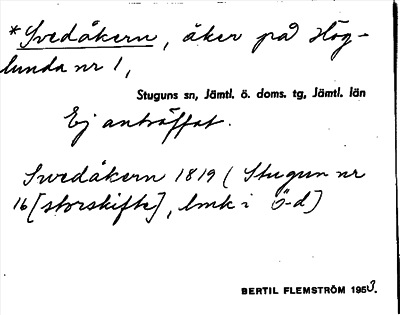 *Svedåkern, åker på Hög-
lunda nr 1,
Stuguns sn, Jämtl. ö. doms. tg, Jämtl. län
Ej anträffat.
Swedåkern 1819 (Stugun nr
16 [storskifte], lmk i Ö-d)
BERTIL FLEMSTRÖM 1953.